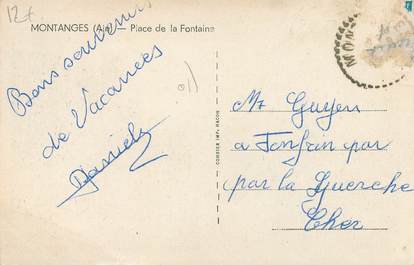 12€
MONTANGES (Ain) — Place de la Fontaine
Bons souvenirs
de Vacances
Daniel
COMBIER IMP. MACON
MON
Mr Guyen
a Jonfrin par
par la Guerche
Cher